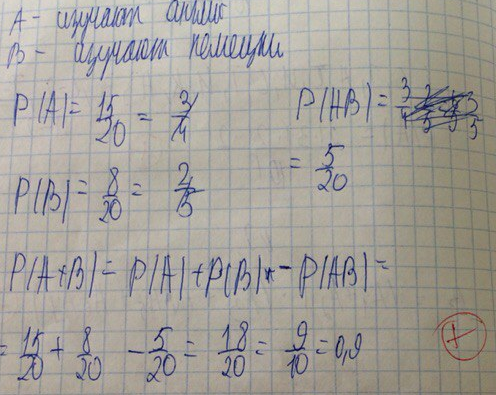 А - изучают англий
В - изучают немецкий
P(A) = 15/20 = 3/4
P(AB) = 3/4
= 5/20
P(B) = 8/20 = 2/5
P(A+B) = P(A) + P(B) - P(AB) =
= 15/20 + 8/20 - 5/20 = 18/20 = 9/10 = 0,9
+